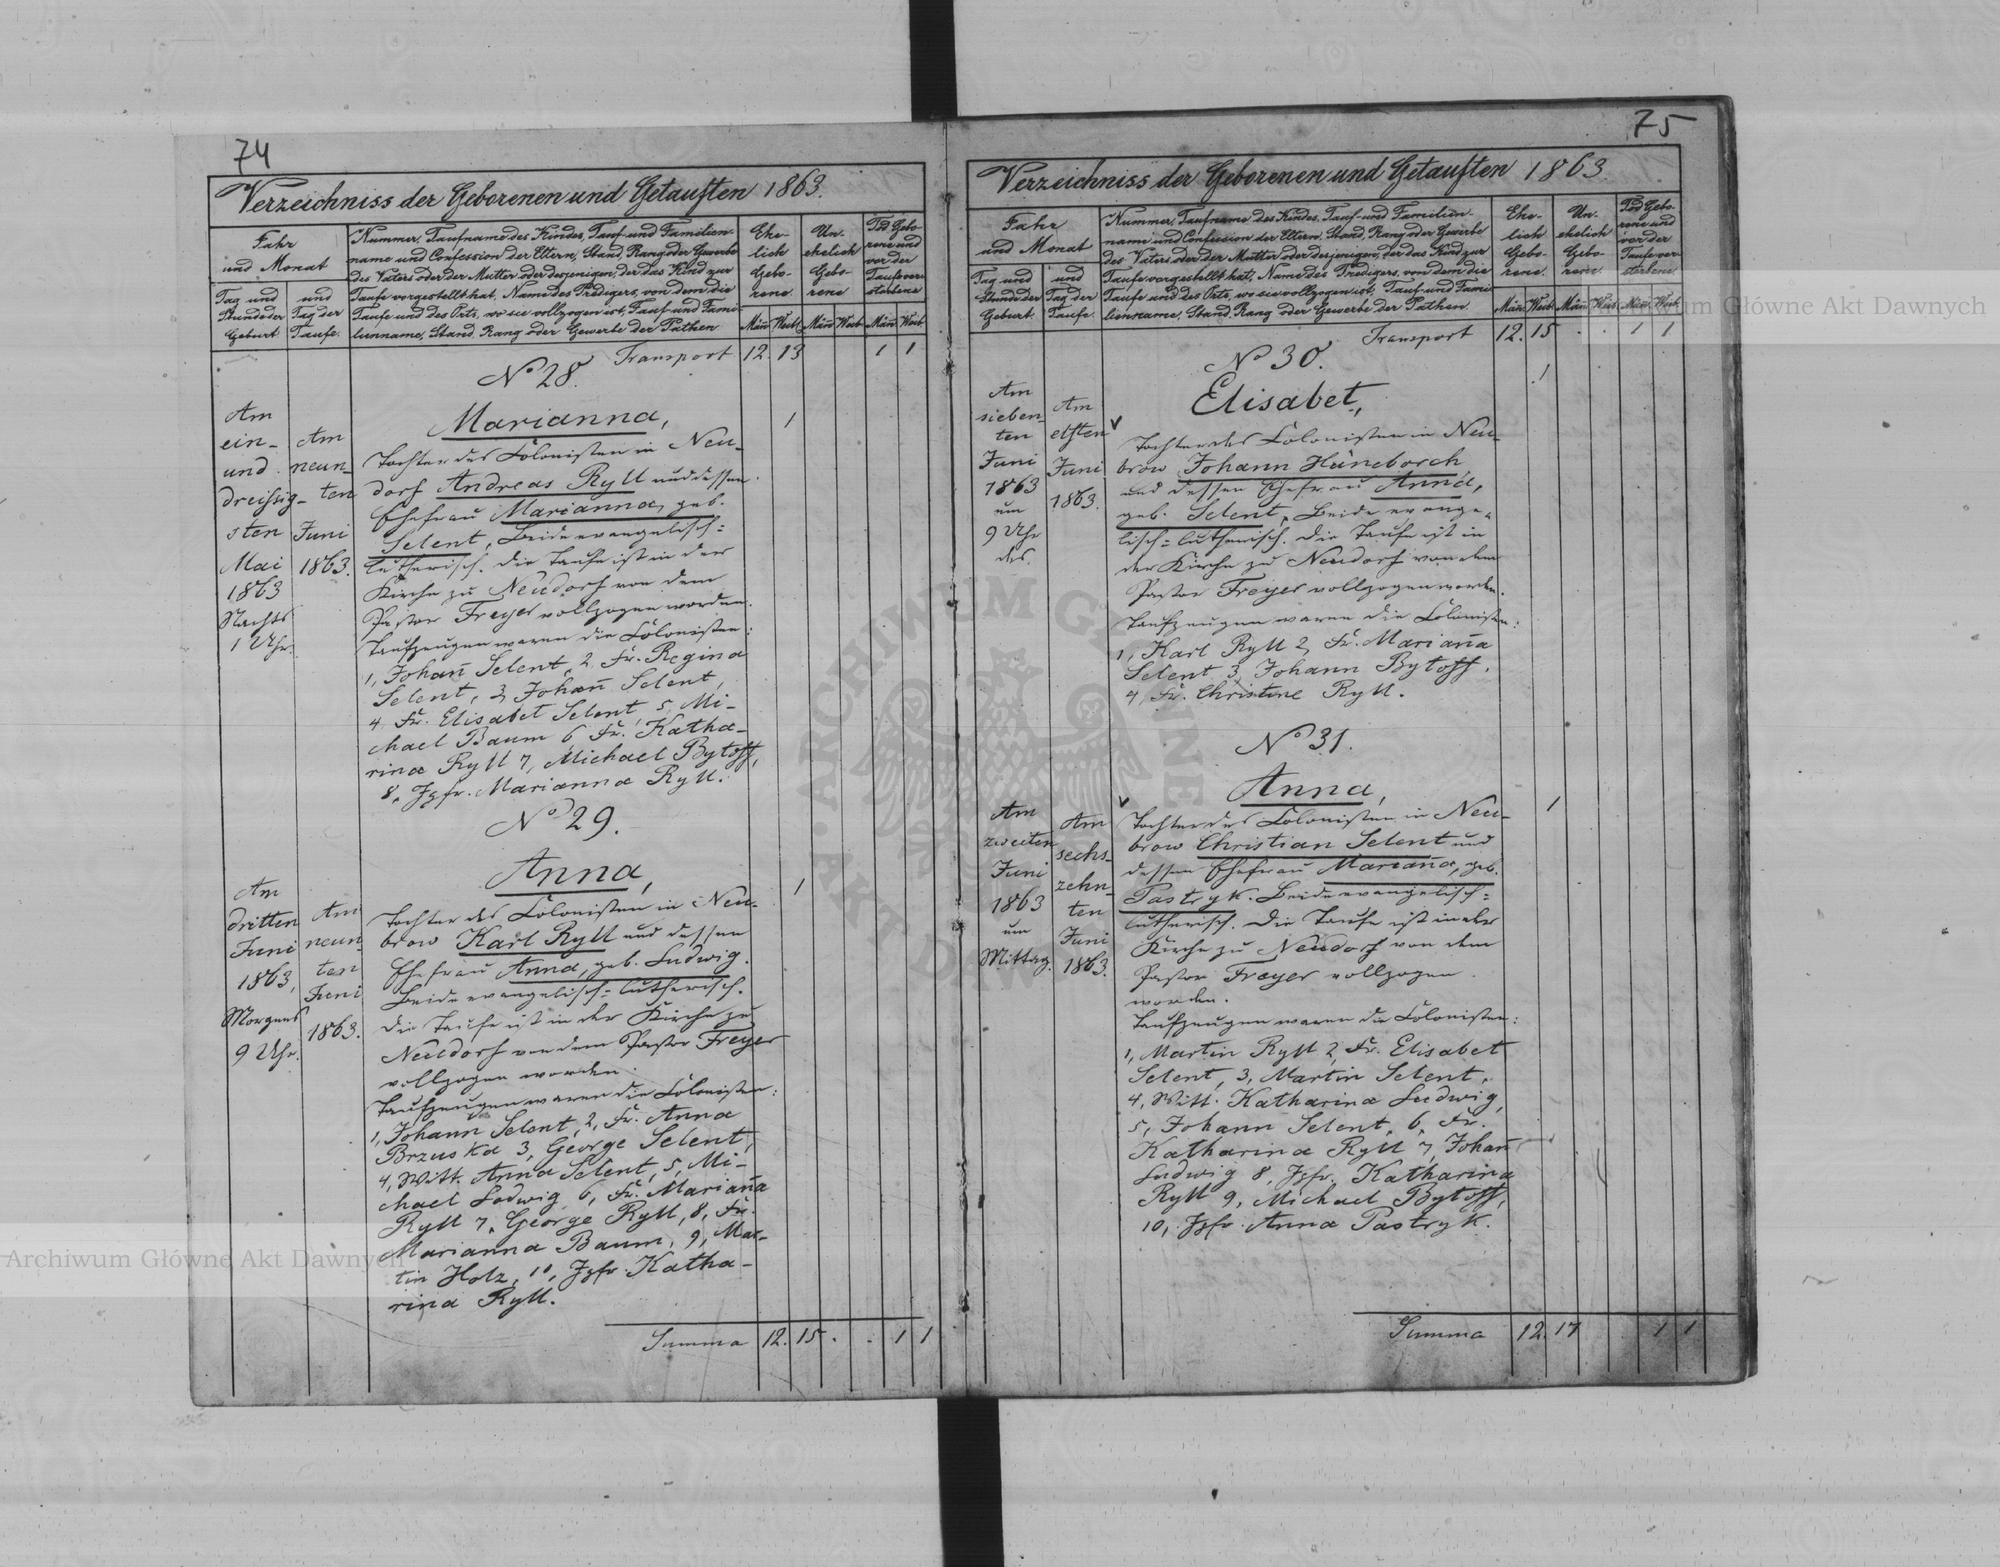 74
Verzeichniss der Geborenen und Getauften 1863.
Jahr
und Monat
Tag und
Stunde der
Geburt.
und
Tag der
Taufe.
Nummer, Taufname des Kindes, Tauf- und Familien-
name und Confession der Eltern, Stand, Rang oder Gewerbe
des Vaters oder der Mutter oder desjenigen, der das Kind zur
Taufe vorgestellt hat, Name des Predigers, von dem die
Taufe und des Orts, wo sie vollzogen ist, Tauf- und Fami-
lienname, Stand, Rang oder Gewerbe der Pathen.
Ehe-
lich
Gebo-
rene
Un-
ehelich
Gebo-
rene
Tod Gebo-
rene und
vor der
Taufe ver-
storbene
Män Weib. Män Weib Män Weib
Transport 12. 13 1 1
No 28.
Am
ein-
und
dreissig-
sten
Mai
1863
Nachts
1 Uhr.
Am
neun-
ten
Juni
1863.
Marianna, 1
Tochter des Colonisten in Neu-
dorf Andreas Ryll und dessen
Ehefrau Marianna, geb.
Selent, Beide evangelisch-
lutherisch. Die Taufe ist in der
Kirche zu Neudorf von dem
Pastor Freyer vollzogen worden.
Taufzeugen waren die Colonisten:
1, Johañ Selent, 2, Fr. Regina
Selent, 3, Johañ Selent,
4, Fr. Elisabet Selent, 5, Mi-
chael Baum 6, Fr. Katha-
rina Ryll 7, Michael Bytoff,
8, Jgfr. Marianna Ryll.
No 29.
Am
dritten
Juni
1863,
Morgens
9 Uhr.
Am
neun-
ten
Juni
1863.
Anna, 1
Tochter des Colonisten in Neu-
brow Karl Ryll und dessen
Ehefrau Anna, geb. Ludwig.
Beide evangelisch-lutherisch.
Die Taufe ist in der Kirche zu
Neudorf von dem Pastor Freyer
vollzogen worden.
Taufzeugen waren die Colonisten:
1, Johann Selent, 2, Fr. Anna
Brzuska 3, George Selent,
4, Witt. Anna Selent, 5, Mi-
chael Ludwig 6, Fr. Mariaña
Ryll 7, George Ryll, 8, Fr.
Marianna Baum, 9, Mar-
tin Holz, 10, Jgfr. Katha-
rina Ryll.
Summa 12. 15 . . 1 1
75
Verzeichniss der Geborenen und Getauften 1863
Jahr
und Monat
Tag und
Stunde der
Geburt.
und
Tag der
Taufe.
Nummer, Taufname des Kindes, Tauf- und Familien-
name und Confession der Eltern, Stand, Rang oder Gewerbe
des Vaters oder der Mutter oder desjenigen, der das Kind zur
Taufe vorgestellt hat, Name des Predigers, von dem die
Taufe und des Orts, wo sie vollzogen ist, Tauf- und Fami-
lienname, Stand, Rang oder Gewerbe der Pathen.
Ehe-
lich
Gebo-
rene.
Un-
ehelich
Gebo-
rene.
Tod Gebo-
rene und
vor der
Taufe ver-
storbene
Män Weib. Män Weib Män Weib
Transport 12. 15 . . 1 1
No 30.
Am
sieben-
ten
Juni
1863
um
9 Uhr
des.
Am
elften
Juni
1863.
Elisabet, 1
Tochter des Colonisten in Neu-
brow Johann Hüneborch
und dessen Ehefrau Anna,
geb. Selent, Beide evange-
lisch-lutherisch. Die Taufe ist in
der Kirche zu Neudorf von dem
Pastor Freyer vollzogen worden.
Taufzeugen waren die Colonisten:
1, Karl Ryll 2, Fr. Mariaña
Selent 3, Johann Bytoff.
4, Fr. Christine Ryll.
No 31.
Am
zweiten
Juni
1863
um
Mittag.
Am
sechs-
zehn-
ten
Juni
1863.
Anna, 1
Tochter des Colonisten in Neu-
brow Christian Selent und
dessen Ehefrau Mariaña, geb.
Pastryk. Beide evangelisch-
lutherisch. Die Taufe ist in der
Kirche zu Neudorf von dem
Pastor Freyer vollzogen
worden.
Taufzeugen waren die Colonisten:
1, Martin Ryll 2, Fr. Elisabet
Selent, 3, Martin Selent,
4, Witt. Katharina Ludwig,
5, Johann Selent, 6, Fr.
Katharina Ryll 7, Johañ
Ludwig 8, Jgfr. Katharina
Ryll 9, Michael Bytoff,
10, Jgfr. Anna Pastryk.
Summa 12. 17 1 1
Archiwum Główne Akt Dawnych
Archiwum Główne Akt Dawnych
ARCHIWUM GŁÓWNE AKT DAWNYCH